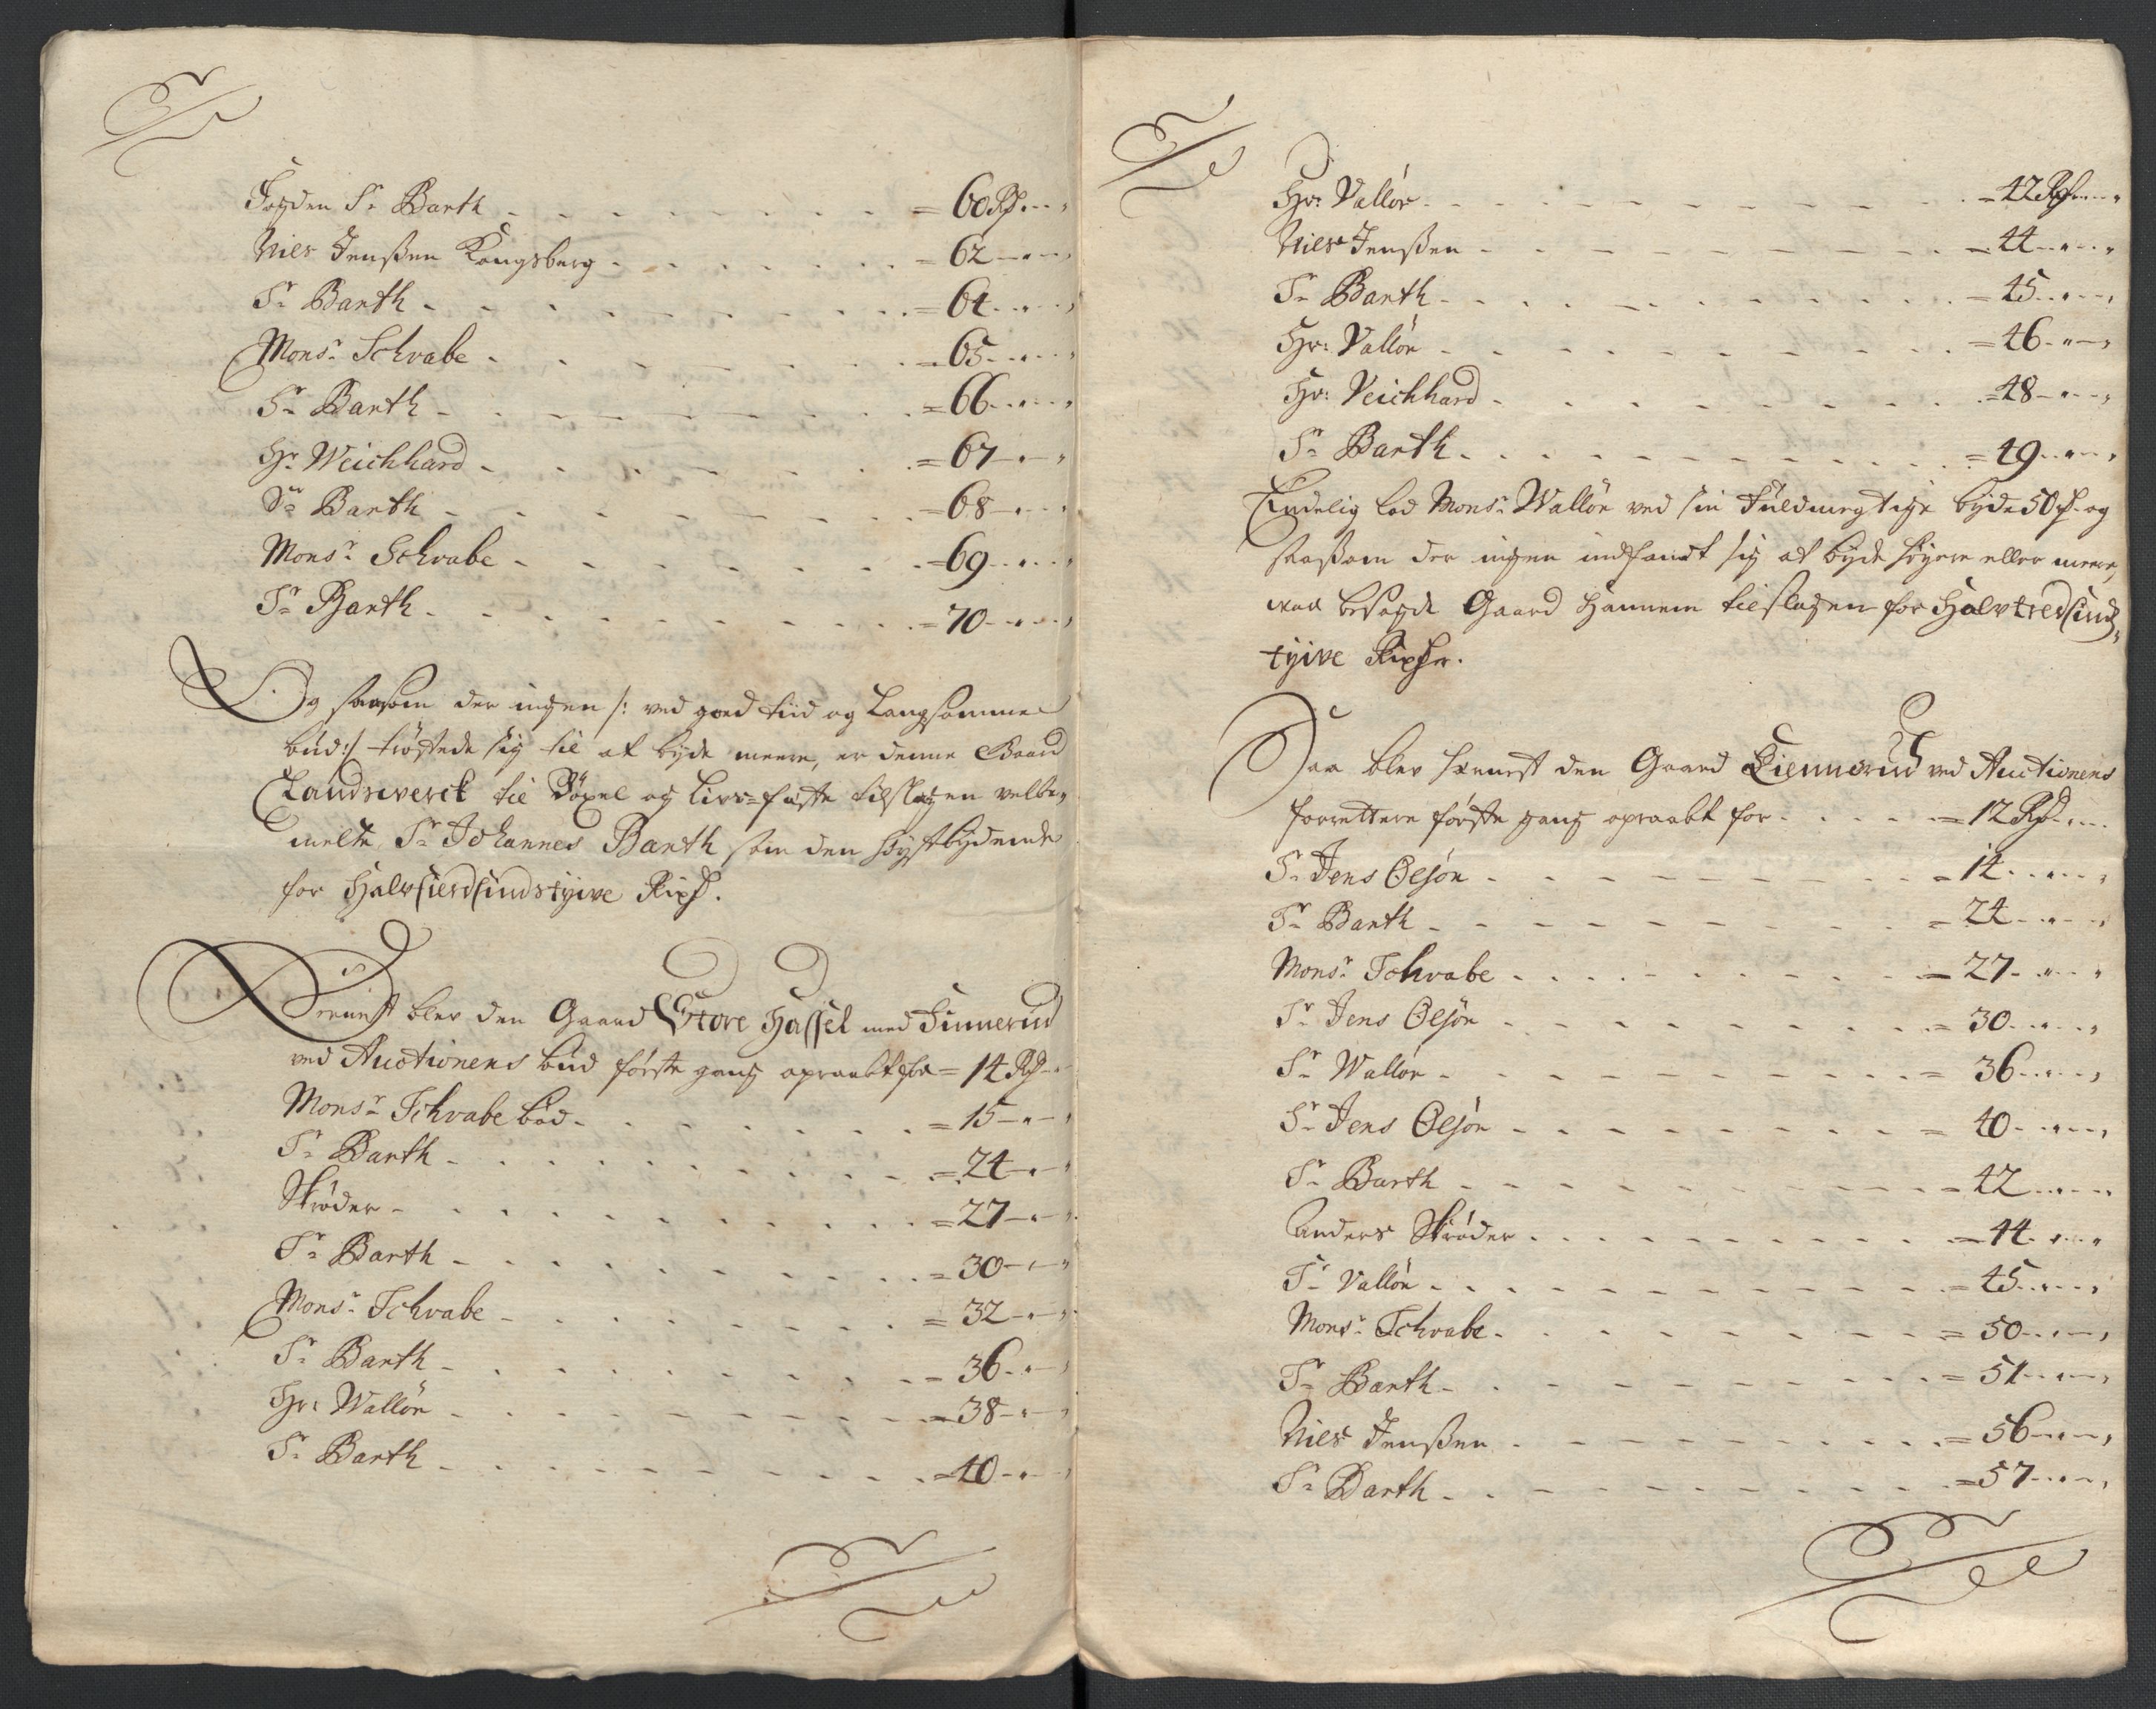 Fogden Sr Barth - - - - = 60 Rd - - -
Niels Jenssen Kongsberg - - - - = 62 - - -
Sr Barth - - - - = 64 - - -
Monsr Schvabe - - - - = 65 - - -
Sr Barth - - - - = 66 - - -
Hr Weichhard - - - - = 67 - - -
Sr Barth - - - - = 68 - - -
Monsr Schvabe - - - - = 69 - - -
Sr Barth - - - - = 70 - - -
Og saasom der ingen /: ved goed tiid og Langsomme
bud :/ trøstede sig til at byde meere, er denne Gaard
Landsverck til Bøxel og Livs=fæste tilslagen velbe-
melte Sr Johannes Barth som den høystbydende
for Halvfierdsindstyive Rixd.
Dernest blev den Gaard Store Hassel med Finnerud
ved Auctionens bud første gang opraabt for = 14 Rd - -
Monsr Schvabe bød - - - - = 15 - - -
Sr Barth - - - - = 24 - - -
Skrøder - - - - = 27 - - -
Sr Barth - - - - = 30 - - -
Monsr Schvabe - - - - = 32 - - -
Sr Barth - - - - = 36 - - -
Hr: Walløe - - - - = 38 - - -
Sr Barth - - - - = 40 - - -
Hr: Valløe - - - - = 42 Rd - - -
Niels Jenssen - - - - = 44 - - -
Sr Barth - - - - = 45 - - -
Hr: Valløe - - - - = 46 - - -
Hr: Veichhard - - - - = 48 - - -
Sr Barth - - - - = 49 - - -
Endelig lod Monsr Walløe ved sin Fuldmegtige byde 50 Rd og
saasom der ingen indfandt sig at byde høyere eller meere,
var besagde Gaard hannem tilslagen for Halvtredsinds-
tyive Rixdr.
Saa blev hernest den Gaard Kiennerud ved Auctionens
forrettere første gang opraabt for - - - - = 12 Rd - - -
Sr Jens Olsøn - - - - = 14 - - -
Sr Barth - - - - = 24 - - -
Monsr Schvabe - - - - = 27 - - -
Sr Jens Olsøn - - - - = 30 - - -
Sr Walløe - - - - = 36 - - -
Sr Jens Olsøn - - - - = 40 - - -
Sr Barth - - - - = 42 - - -
Anders Skrøder - - - - = 44 - - -
Sr Valløe - - - - = 45 - - -
Monsr Schvabe - - - - = 50 - - -
Sr Barth - - - - = 51 - - -
Niels Jenssen - - - - = 56 - - -
Sr Barth - - - - = 57 - - -